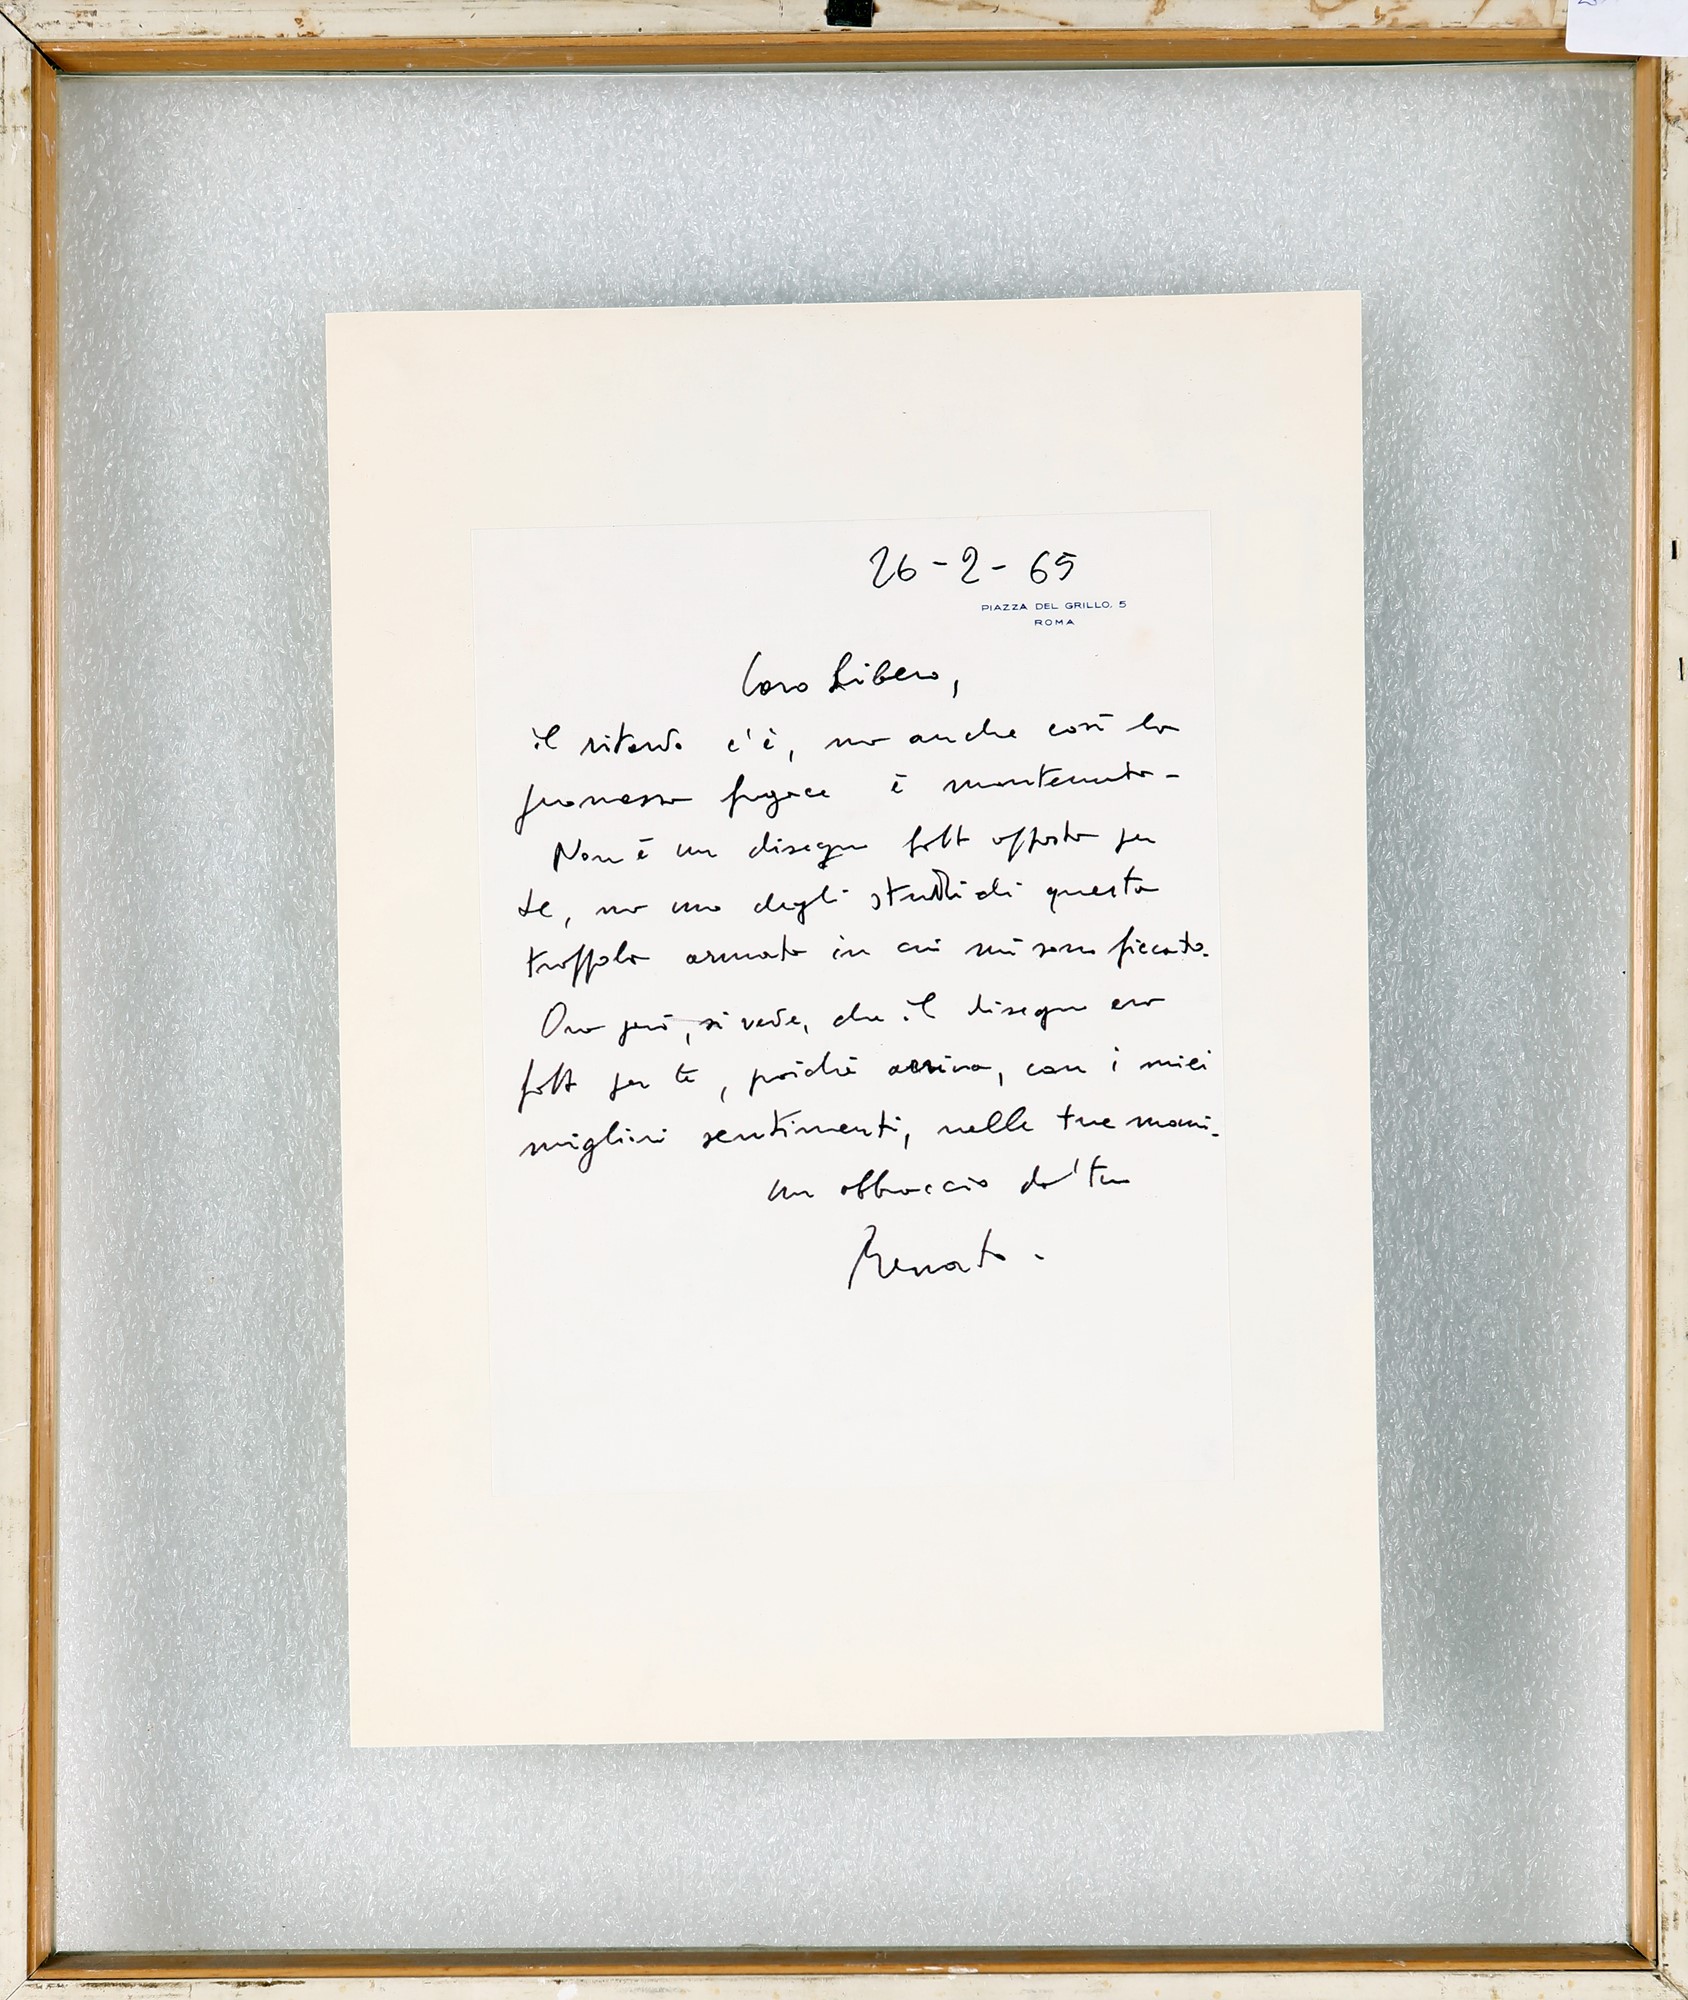 26-2-65
PIAZZA DEL GRILLO, 5
ROMA
Caro Libero,
il ritardo c'è, ma anche così la
promessa fugace è mantenuta-
Non è un disegno fatto apposta per
te, ma uno degli studi di questa
trappola armata in cui mi sono ficcato.
Ora però, si vede, che il disegno era
fatto per te, poiché arriva, con i miei
migliori sentimenti, nelle tue mani.
un abbraccio dal tuo
Renato-